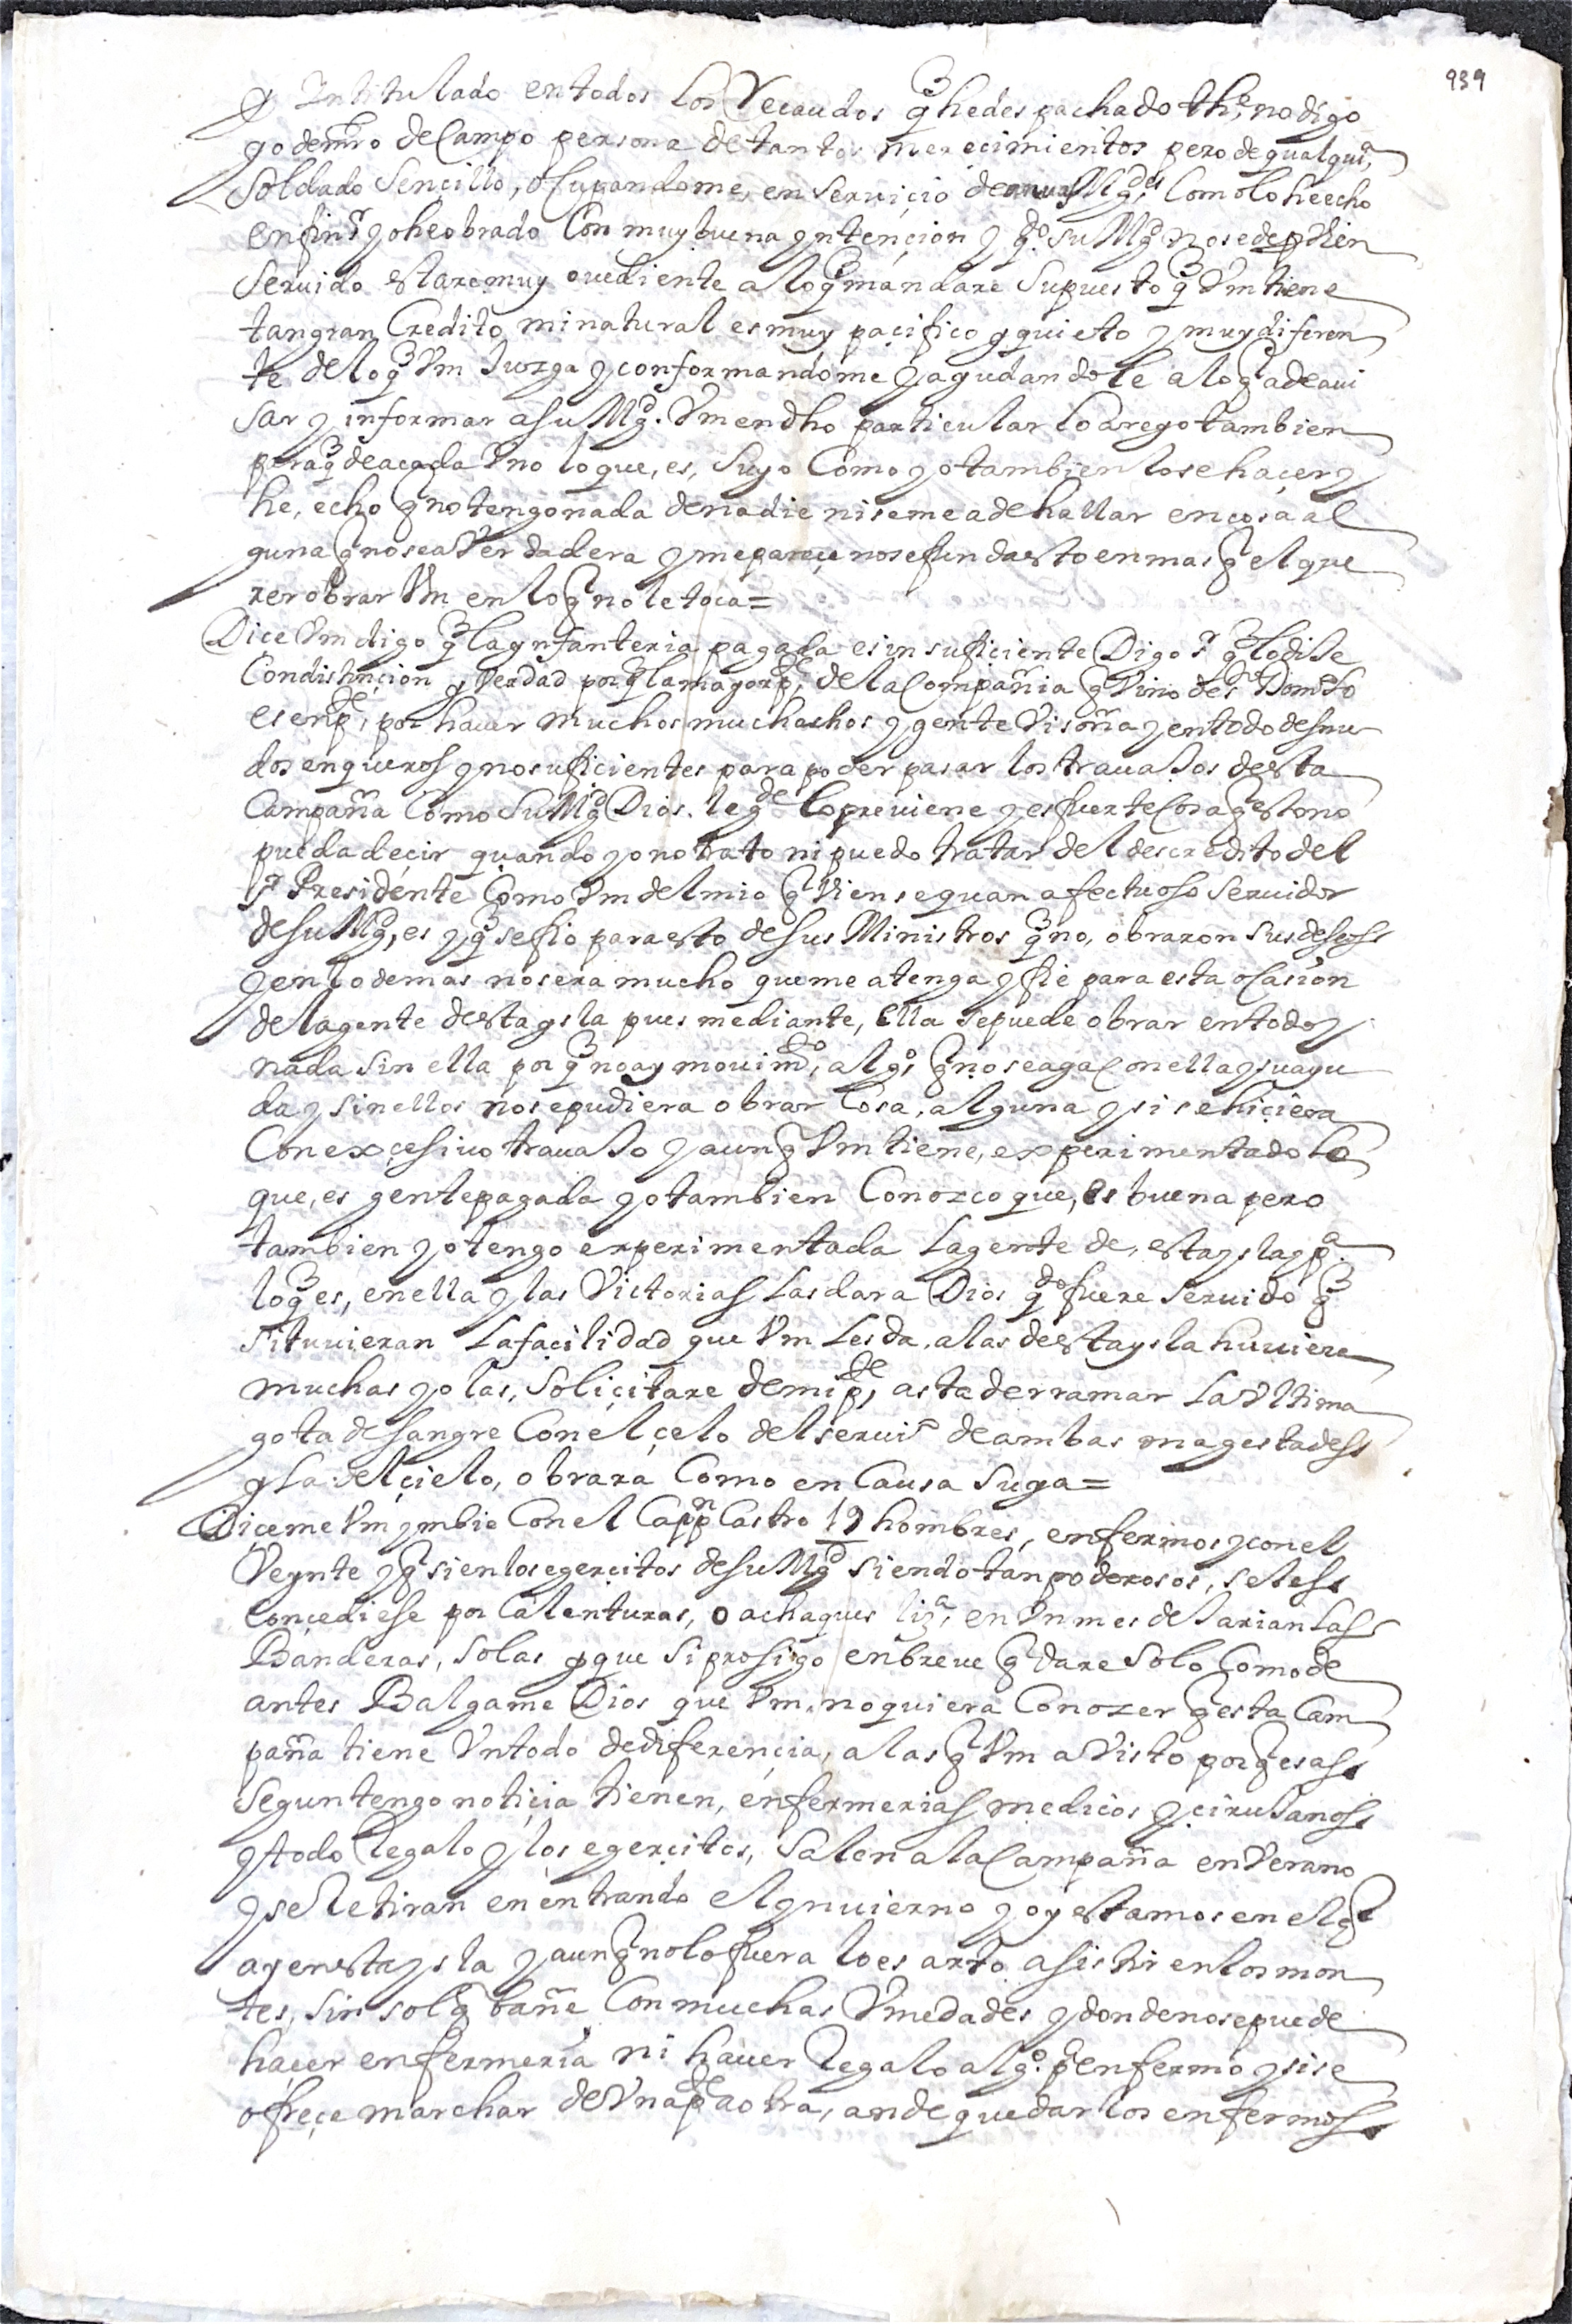 939
Y Intitulado en todos los Recaudos q̃ he despachado thẽ no digo
yo de mro de Campo persona de tantos merecimientos pero de qualquᵃ
Soldado Sencillo, ocupandome en Seruiçio de Mgᵈ Como lo he echo
en fin sʳ yo he obrado Con muy buena yntençion y qᵈᵒ su Mgᵈ no se de pᵒʳ bien
Seruido estare muy ouediente a lo q̃ mandare Supuesto q̃ Vm tiene
tan gran Credito, mi natural es muy paçifico y quieto y muy diferen
te de lo q̃ Vm Juzga y conformandome y ayudandole a lo q̃ a de aui
sar y informar a su Mgᵈ. Vm en dho particular lo arego tambien
para q̃ de a cada Vno lo que, es, Suyo Como yo tambien lo se haçer y
he, echo q̃ no tengo nada de nadie ni se me a de hallar en cosa al
guna q̃ no sea Verdadera y me pareçe no se funda esto en mas q̃ el que
rer obrar Vm en lo q̃ no le toca =
Diçe Vm digo q̃ la ynfanteria pagada es insufiçiente Digo sʳ q̃ lo dije
Con distinçion y Verdad porq̃ la mayor pᵗᵉ, de la Compañia q̃ Vino de Sᵗᵒ Domᵍᵒ lo
es en pᵗᵉ, por hauer muchos muchachos y gente Visoña y en todo desnu
dos en queros y no sufiçientes para poder pasar los trauajos desta
Campaña Como Su Mgᵈ Dios. le gᵈᵉ lo preuiene y es fuerte Cosa q̃ esto no
pueda deçir quando yo no trato ni puedo tratar del descredito del
sʳ Presidente Como Vm del mio q̃ Vien se quan afectuoso Seruidor
de su Mgᵈ, es y q̃ se fio para esto de sus Ministros q̃ no, obraron sus deseos
y en lo demas no sera mucho que me atenga y fie para esta ocasion
de la gente desta ysla pues mediante, ella se puede obrar en todo y
nada sin ella por q̃ no ay mouimᵗᵒ, algᵒ, q̃ no se aga con ella y su ayu
da y sin ellos no se pudiera obrar Cosa, alguna y si se hiçiera
Con exçesiuo trauajo y aunq̃ Vm tiene, experimentado lo
que, es gente pagada yo tambien Conozco que, es buena pero
tambien yo tengo experimentada la gente de, esta ysla y pᵃ.
lo q̃ es, en ella y las Victorias las dara Dios qᵈᵒ fuere seruido q̃
si tuuieran la façilidad que Vm les da, a las de esta ysla huuiera
muchas yo las, Soliçitare de mi pᵗᵉ, asta derramar la Vltima
gota de sangre Con el çelo del seruiᵒ de ambas magestades
y la del çielo, obrara Como en Causa Suya =
Diçeme Vm ymbie Con el Cappⁿ Castro 19 hombres, enfermos y con el
Veynte y q̃ si en los egerçitos de su Mgᵈ siendo tan poderosos, se les
conçediese por Calenturas, o achaques liçᵃ, en Vn mes dejarian las
Banderas, solas y que si prosigo en breue q̃dare solo Como de
antes Balgame Dios que Vm, no quiera Conozer q̃ esta Cam
paña tiene Vn todo de diferençia, a las q̃ Vm a Visto porq̃ esas
Segun tengo notiçia tienen, enfermerias medicos y çirujanos
y todo Regalo y los egerçitos, salen a la Campaña en Verano
y se Retiran en entrando el ynuierno y oy estamos en el q̃
ay en esta ysla y aunq̃ no lo fuera lo es arto asistir en los mon
tes, sin sol q̃ bañe Con muchas Vmedades y donde no se puede
haçer enfermeria ni hauer Regalo algᵒ. pᵃ enfermo y si se
ofreçe marchar de Vna pᵗᵉ a otra, an de quedar los enfermos